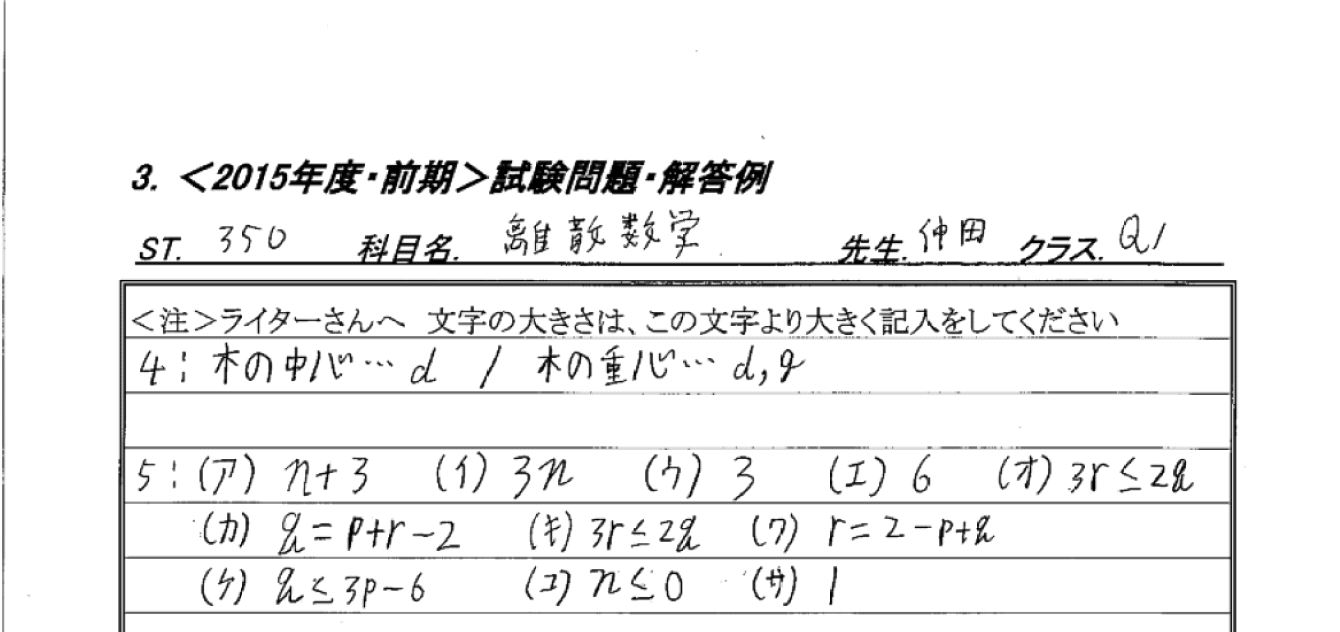 3. <2015年度・前期>試験問題・解答例
ST. 350 科目名. 離散数学 先生. 仲田 クラス. Q1
<注>ライターさんへ 文字の大きさは、この文字より大きく記入をしてください
4: 木の中心… d / 木の重心… d, g
5: (ア) n+3 (イ) 3n (ウ) 3 (エ) 6 (オ) 3r≦2q
(カ) q=p+r-2 (キ) 3r≦2q (ク) r=2-p+q
(ケ) q≦3p-6 (コ) n≦0 (サ) 1